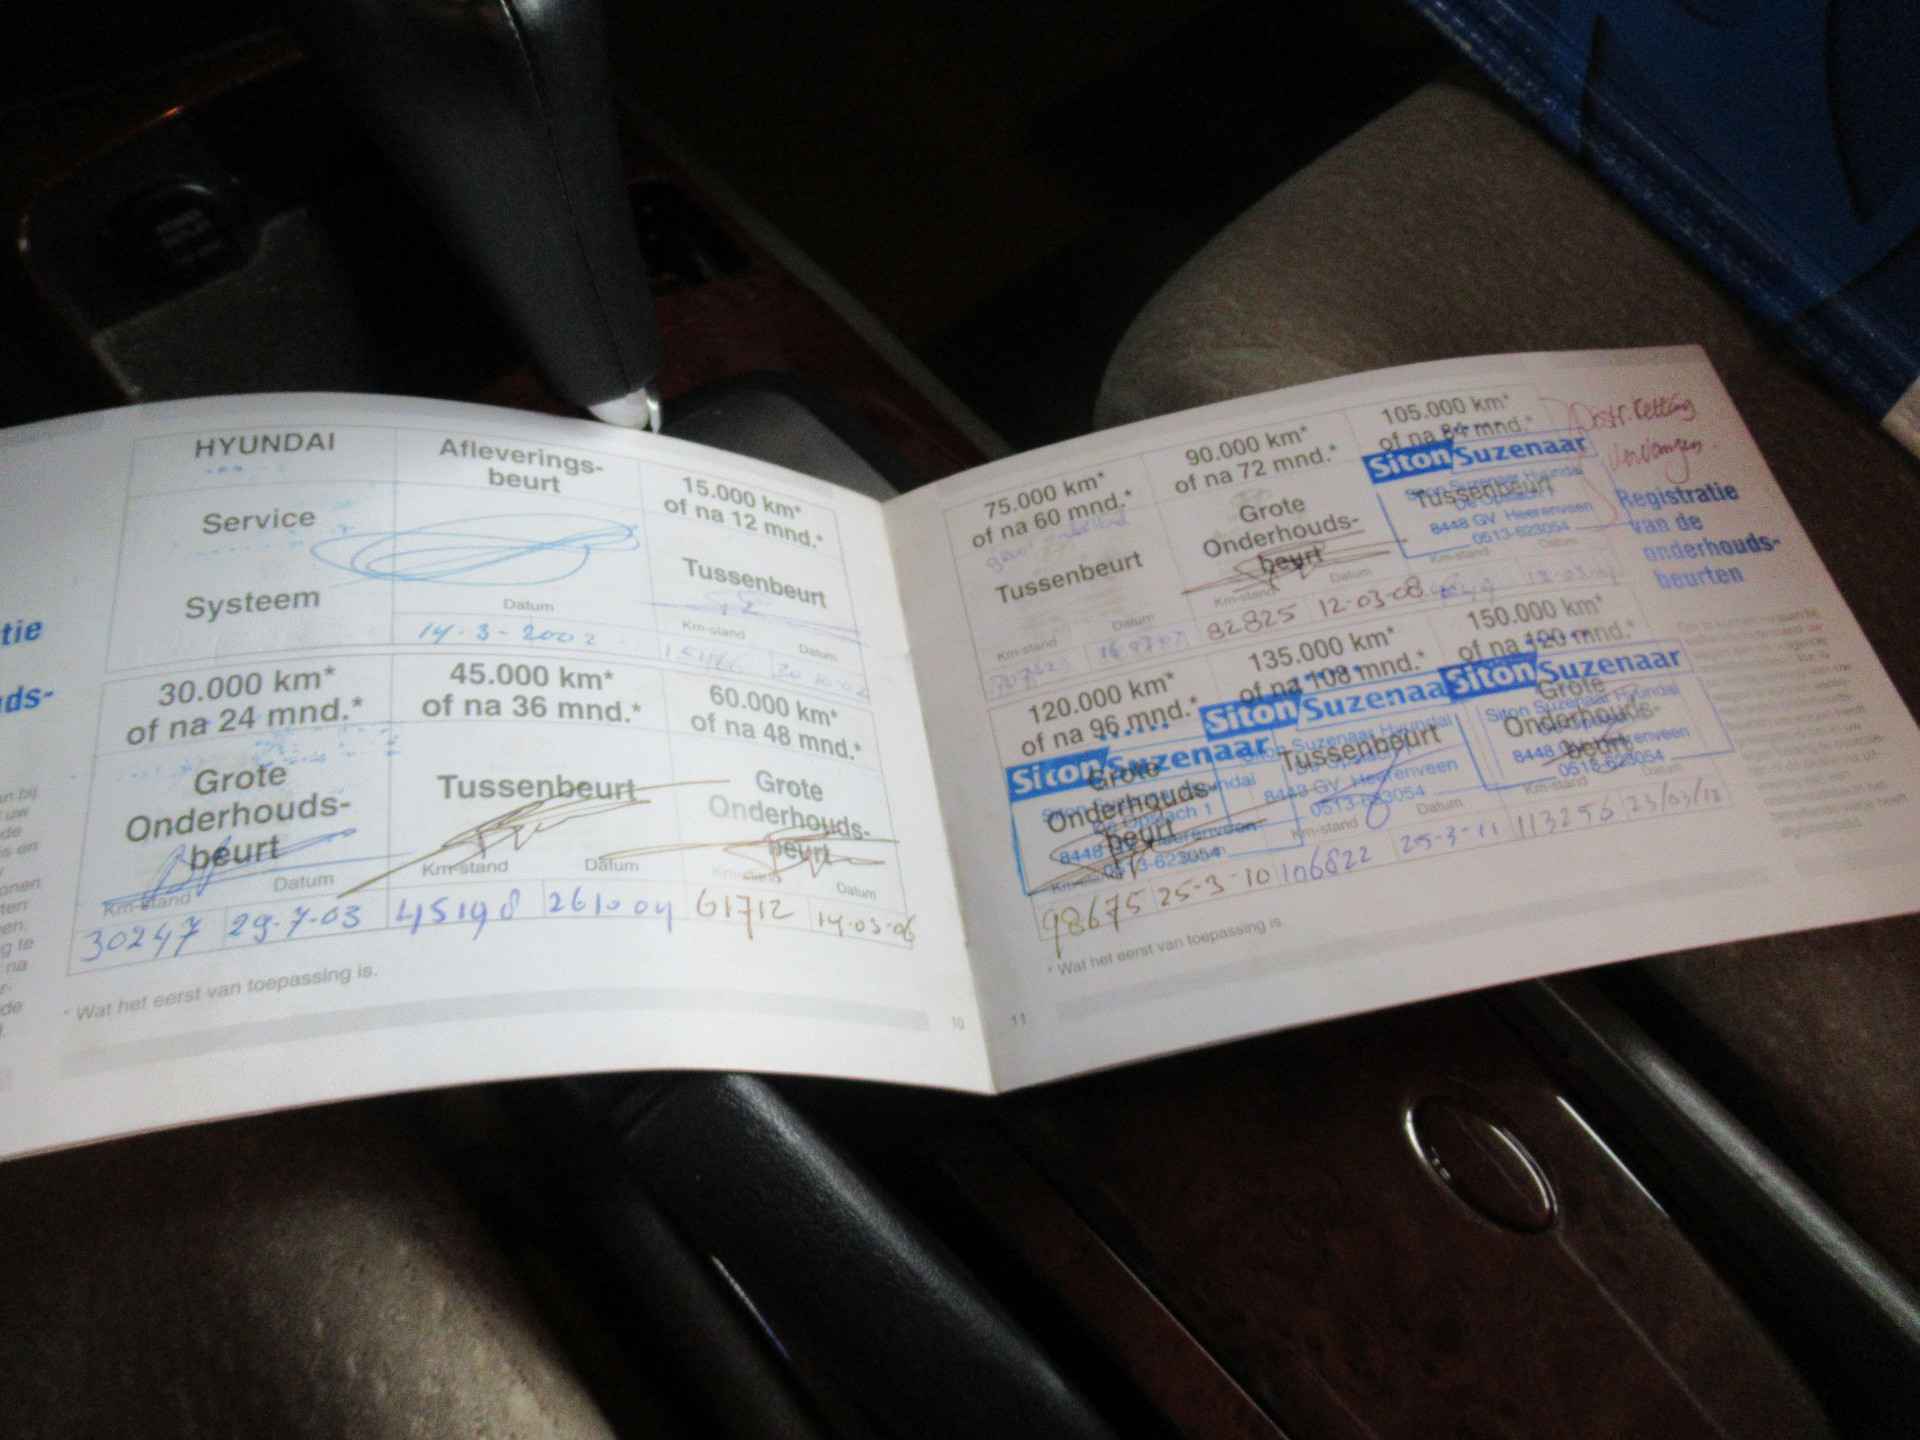 HYUNDAI
Service
Systeem
Afleverings-
beurt
Datum
14-3-2002
15.000 km*
of na 12 mnd.*
Tussenbeurt
Km-stand
Datum
30.000 km*
of na 24 mnd.*
Grote
Onderhouds-
beurt
Km-stand
Datum
30247
29-7-03
45.000 km*
of na 36 mnd.*
Tussenbeurt
Km-stand
Datum
45198
261004
60.000 km*
of na 48 mnd.*
Grote
Onderhouds-
beurt
Datum
61712
14-03-06
* Wat het eerst van toepassing is.
10
75.000 km*
of na 60 mnd.*
Tussenbeurt
Km-stand
Datum
90.000 km*
of na 72 mnd.*
Grote
Onderhouds-
beurt
Km-stand
Datum
82825
12-03-08
105.000 km*
of na 84 mnd.*
Siton Suzenaar
Tussenbeurt
8448 GV Heerenveen
0513-623054
Km-stand
Datum
Distr. ketting
vervangen.
Registratie
van de
onderhouds-
beurten
120.000 km*
of na 96 mnd.*
Siton Suzenaar
Grote
Onderhouds-
beurt
8448 GV Heerenveen
0513-623054
98675
25-3-10
135.000 km*
of na 108 mnd.*
Siton Suzenaar
Siton Suzenaar Hyundai
Tussenbeurt
8448 GV Heerenveen
0513-623054
Km-stand
Datum
106822
25-3-11
150.000 km*
of na 120 mnd.*
Siton Suzenaar
Siton Suzenaar Hyundai
Grote
Onderhouds-
beurt
8448 GV Heerenveen
0513-623054
Km-stand
Datum
113256
23/03/12
* Wat het eerst van toepassing is.
11